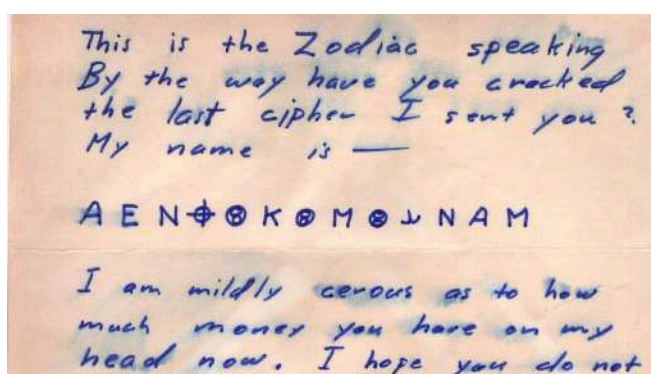 This is the Zodiac speaking
By the way have you cracked
the last cipher I sent you ?
My name is —
A E N ⌖ ⊗ K ⊗ M ⊗ ⅄ N A M
I am mildly cerous as to how
much money you have on my
head now. I hope you do not